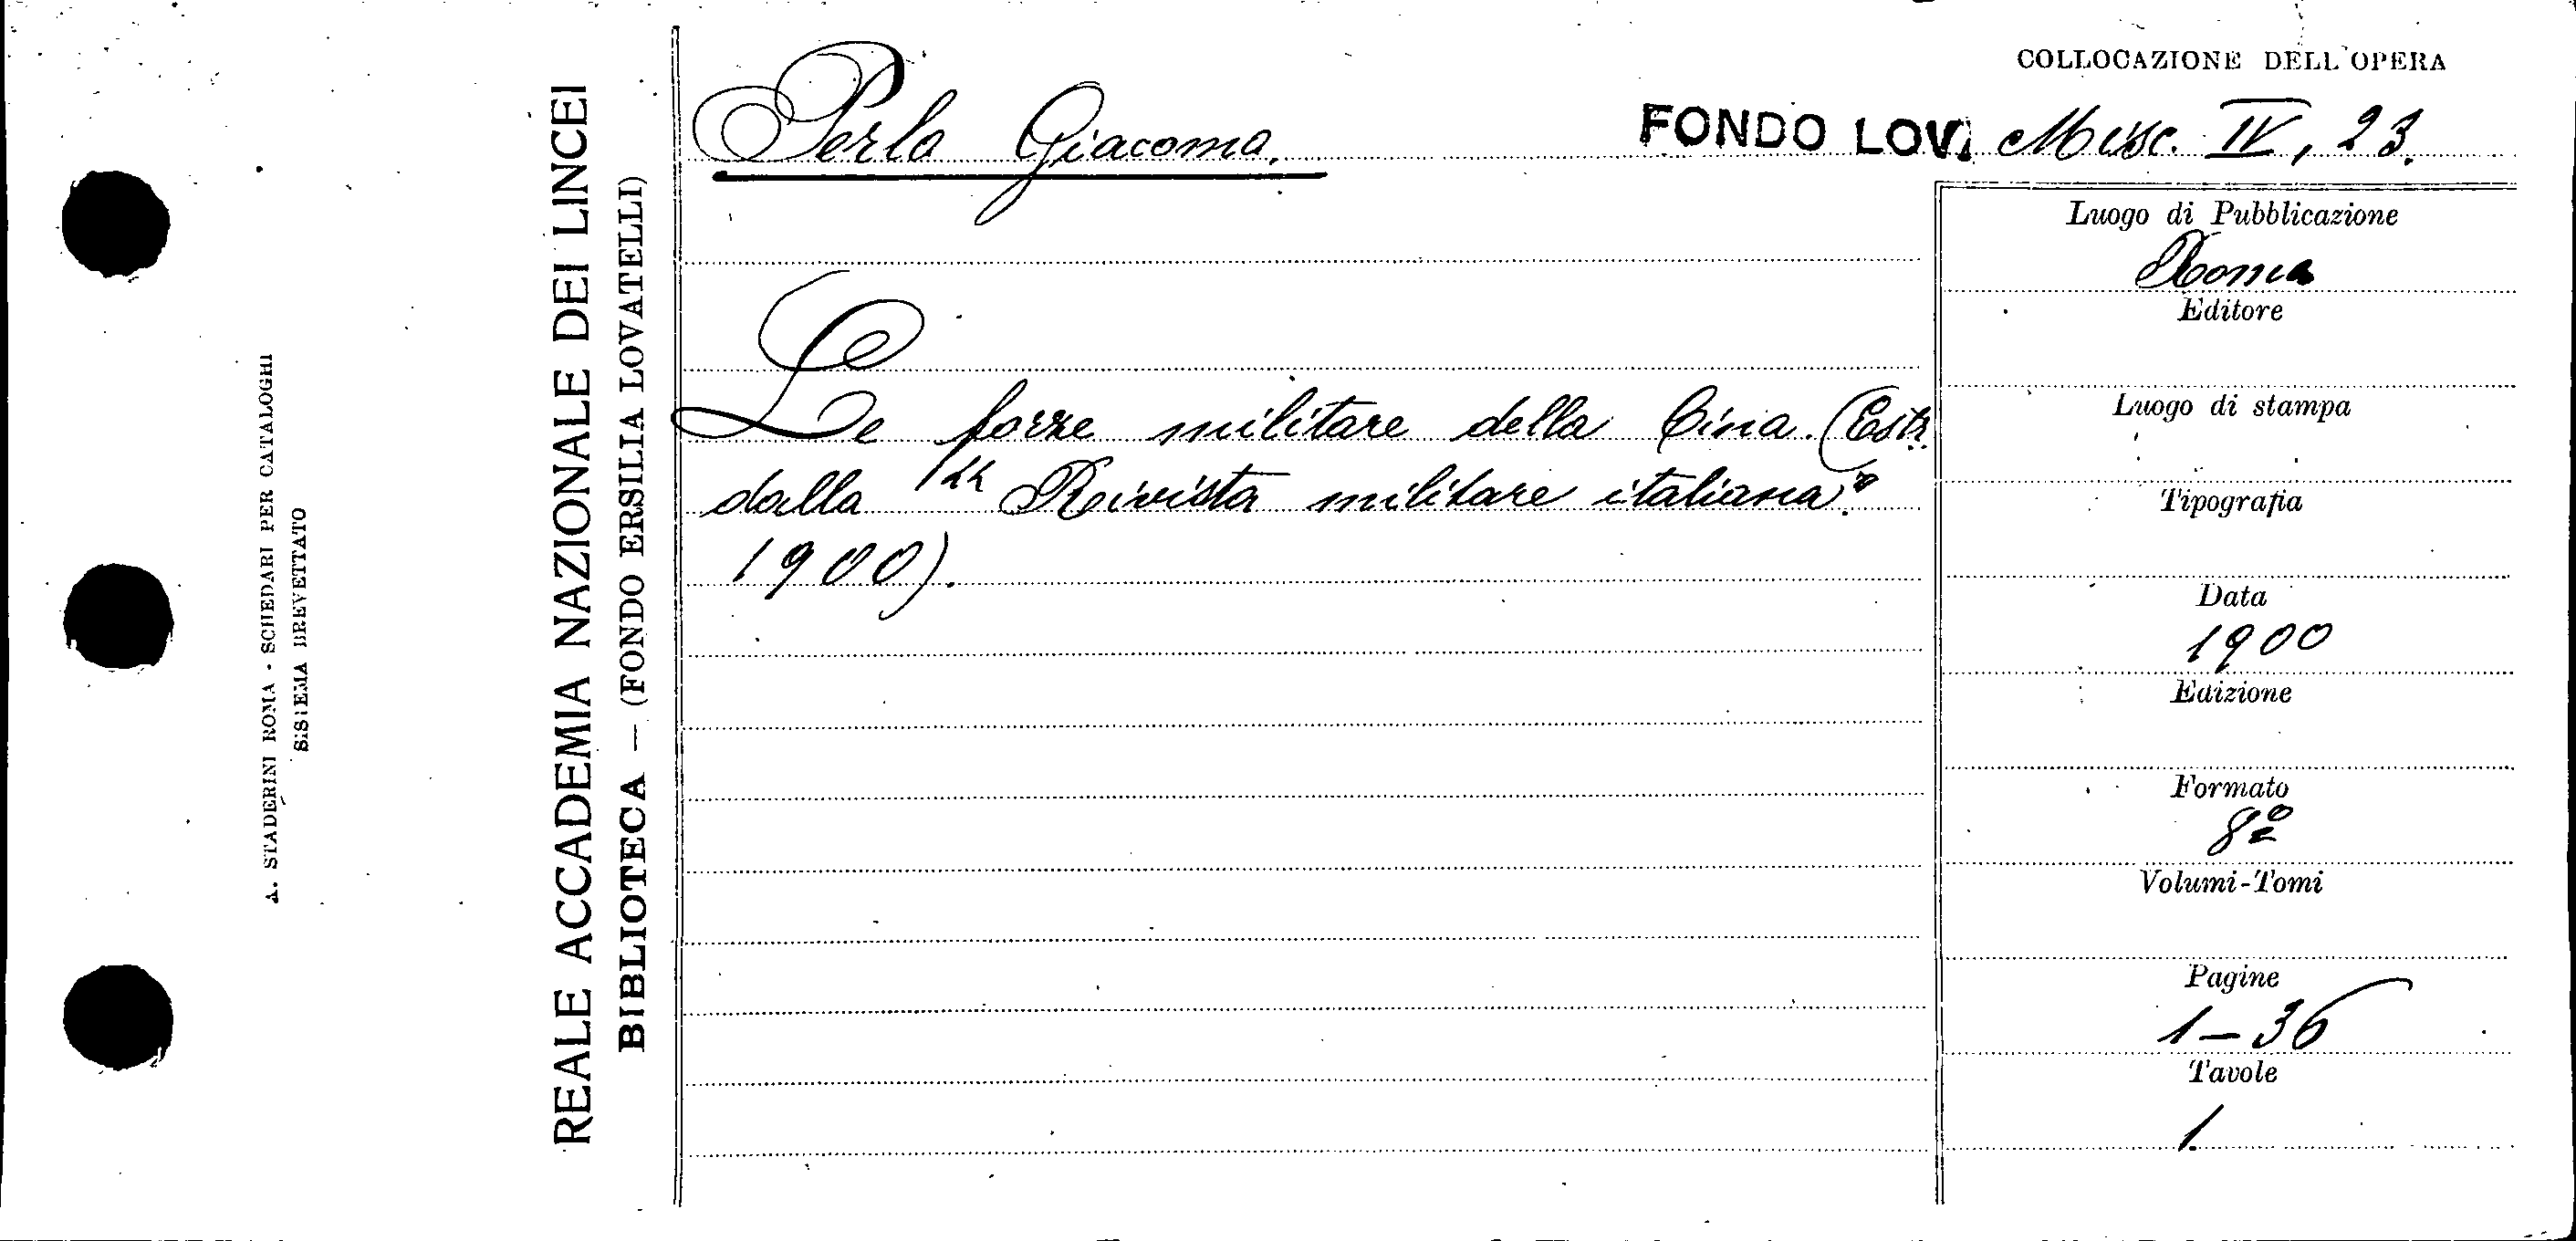 COLLOCAZIONE DELL'OPERA
Perla Giacomo.
FONDO LOV. Misc. IV, 23.
Le forze militare della Cina. (Estr.
dalla "Reivista militare italiana"
1900).
Luogo di Pubblicazione
Roma
Editore
Luogo di stampa
Tipografia
Data
1900
Edizione
Formato
8º
Volumi-Tomi
Pagine
1-36
Tavole
1.
REALE ACCADEMIA NAZIONALE DEI LINCEI
BIBLIOTECA — (FONDO ERSILIA LOVATELLI)
A. STADERINI ROMA - SCHEDARI PER CATALOGHI
SISTEMA BREVETTATO